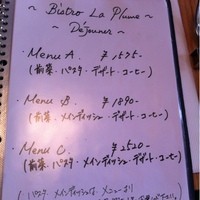 ~ Bistro La Plume ~
~ Déjeuner ~
・Menu A. ¥1575-
(前菜・パスタ・デザート・コーヒー)
・Menu B. ¥1890-
(前菜・メインディッシュ・デザート・コーヒー)
・Menu C. ¥2520-
(前菜・パスタ・メインディッシュ・デザート・コーヒー)
(パスタ、メインディッシュは、メニューより